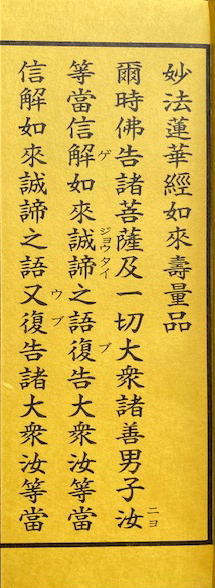 妙法蓮華經如來壽量品
爾時佛告諸菩薩及一切大衆諸善男子汝
ニヨ
等當信解如來誠諦之語復告大衆汝等當
ゲ
ジヨウタイ
ブ
信解如來誠諦之語又復告諸大衆汝等當
ウブ